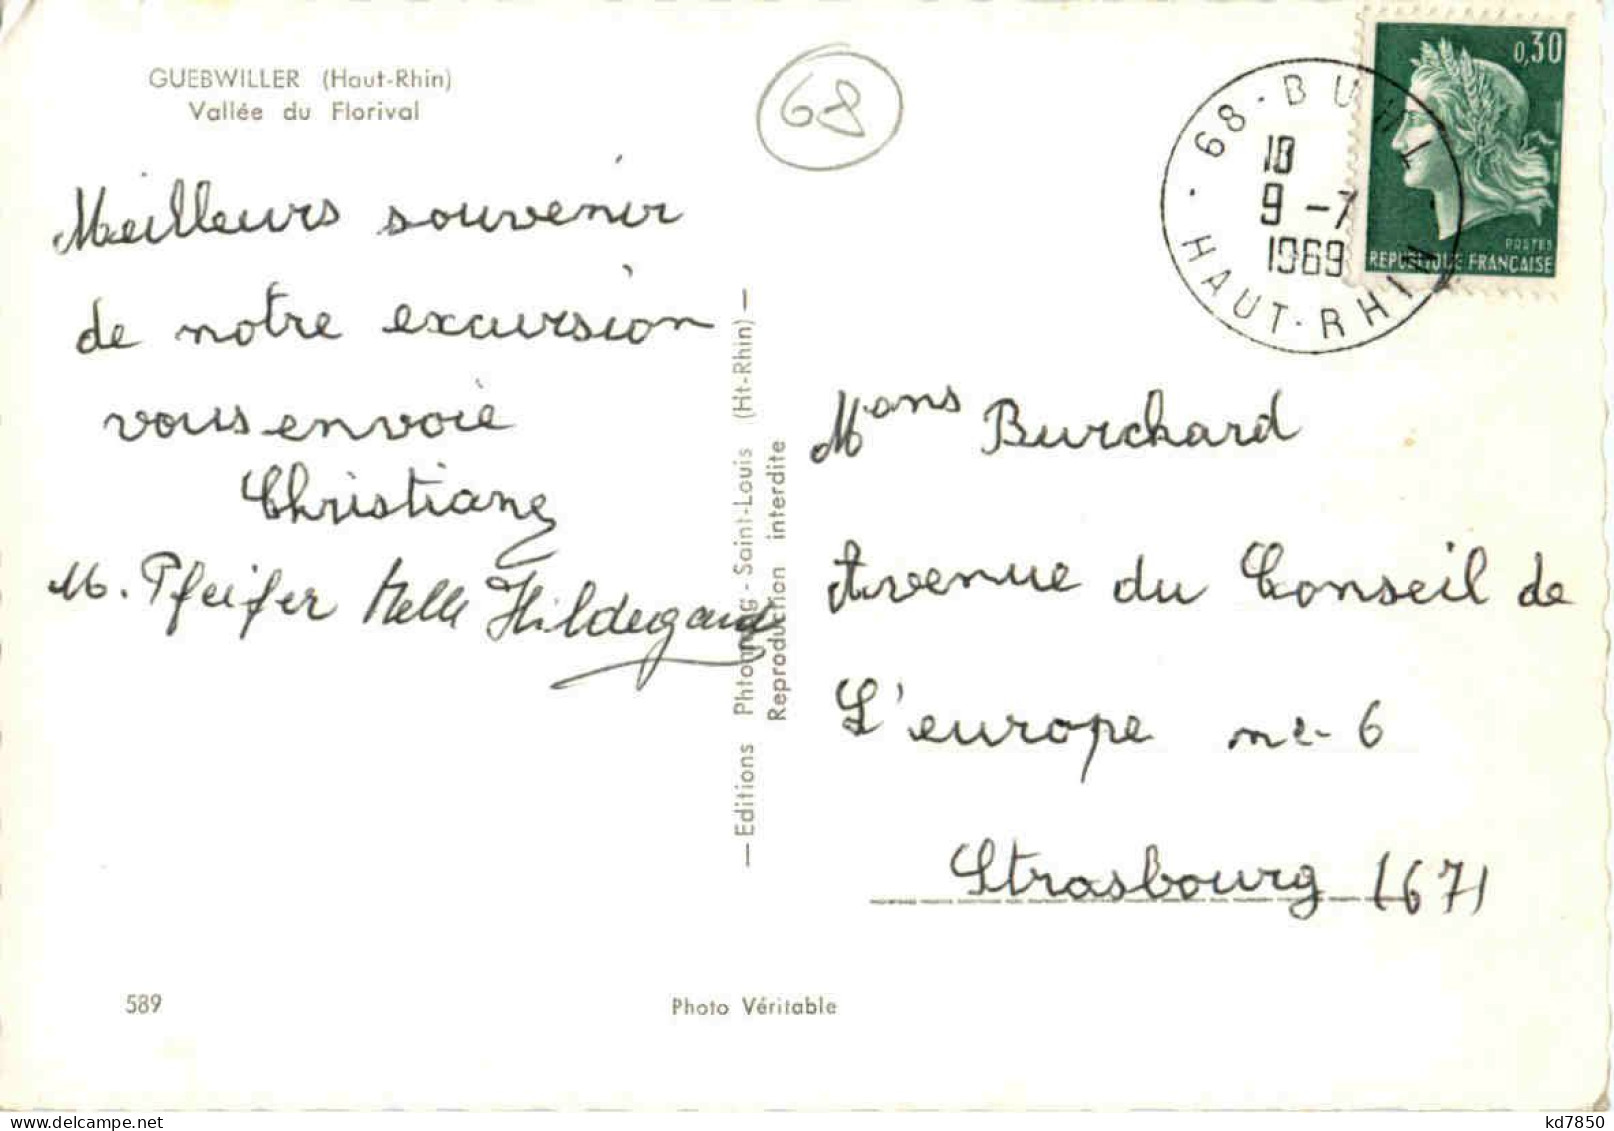 GUEBWILLER (Haut-Rhin)
Vallée du Florival
68
Meilleurs souvenir
de notre excursion
vous envoie
Christiane
M. Pfeifer Melle Hildegard
— Editions Phtomag - Saint-Louis (Ht-Rhin) —
Reproduction interdite
68 - BUHL
18
9 -7
1969
HAUT-RHIN
0,30
POSTES
REPUBLIQUE FRANÇAISE
Mons Burchard
Avenue du Conseil de
L'europe 6
Strasbourg (67)
589
Photo Véritable
kd7850